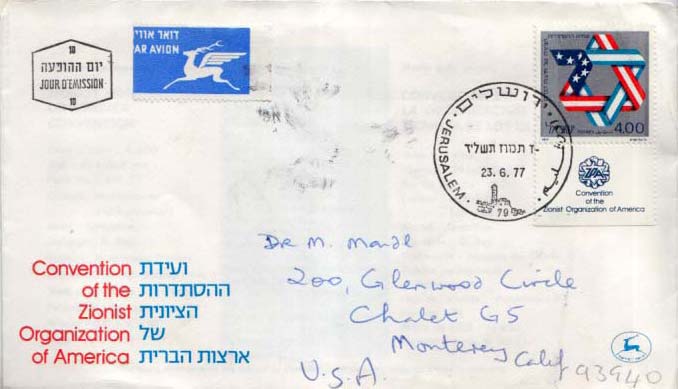 10
יום ההופעה
JOUR D'EMISSION
10
דואר אווי
AR AVION
ירושלים
JERUSALEM
23.6.77
79
ישראל
4.00
Convention
of the
Zionist Organization of America
Dr M. Mandl
200, Glenwood Circle
Chalet G5
Monterey Calif 93940
U.S.A.
Convention ועידת
of the ההסתדרות
Zionist הציונית
Organization של
of America ארצות הברית